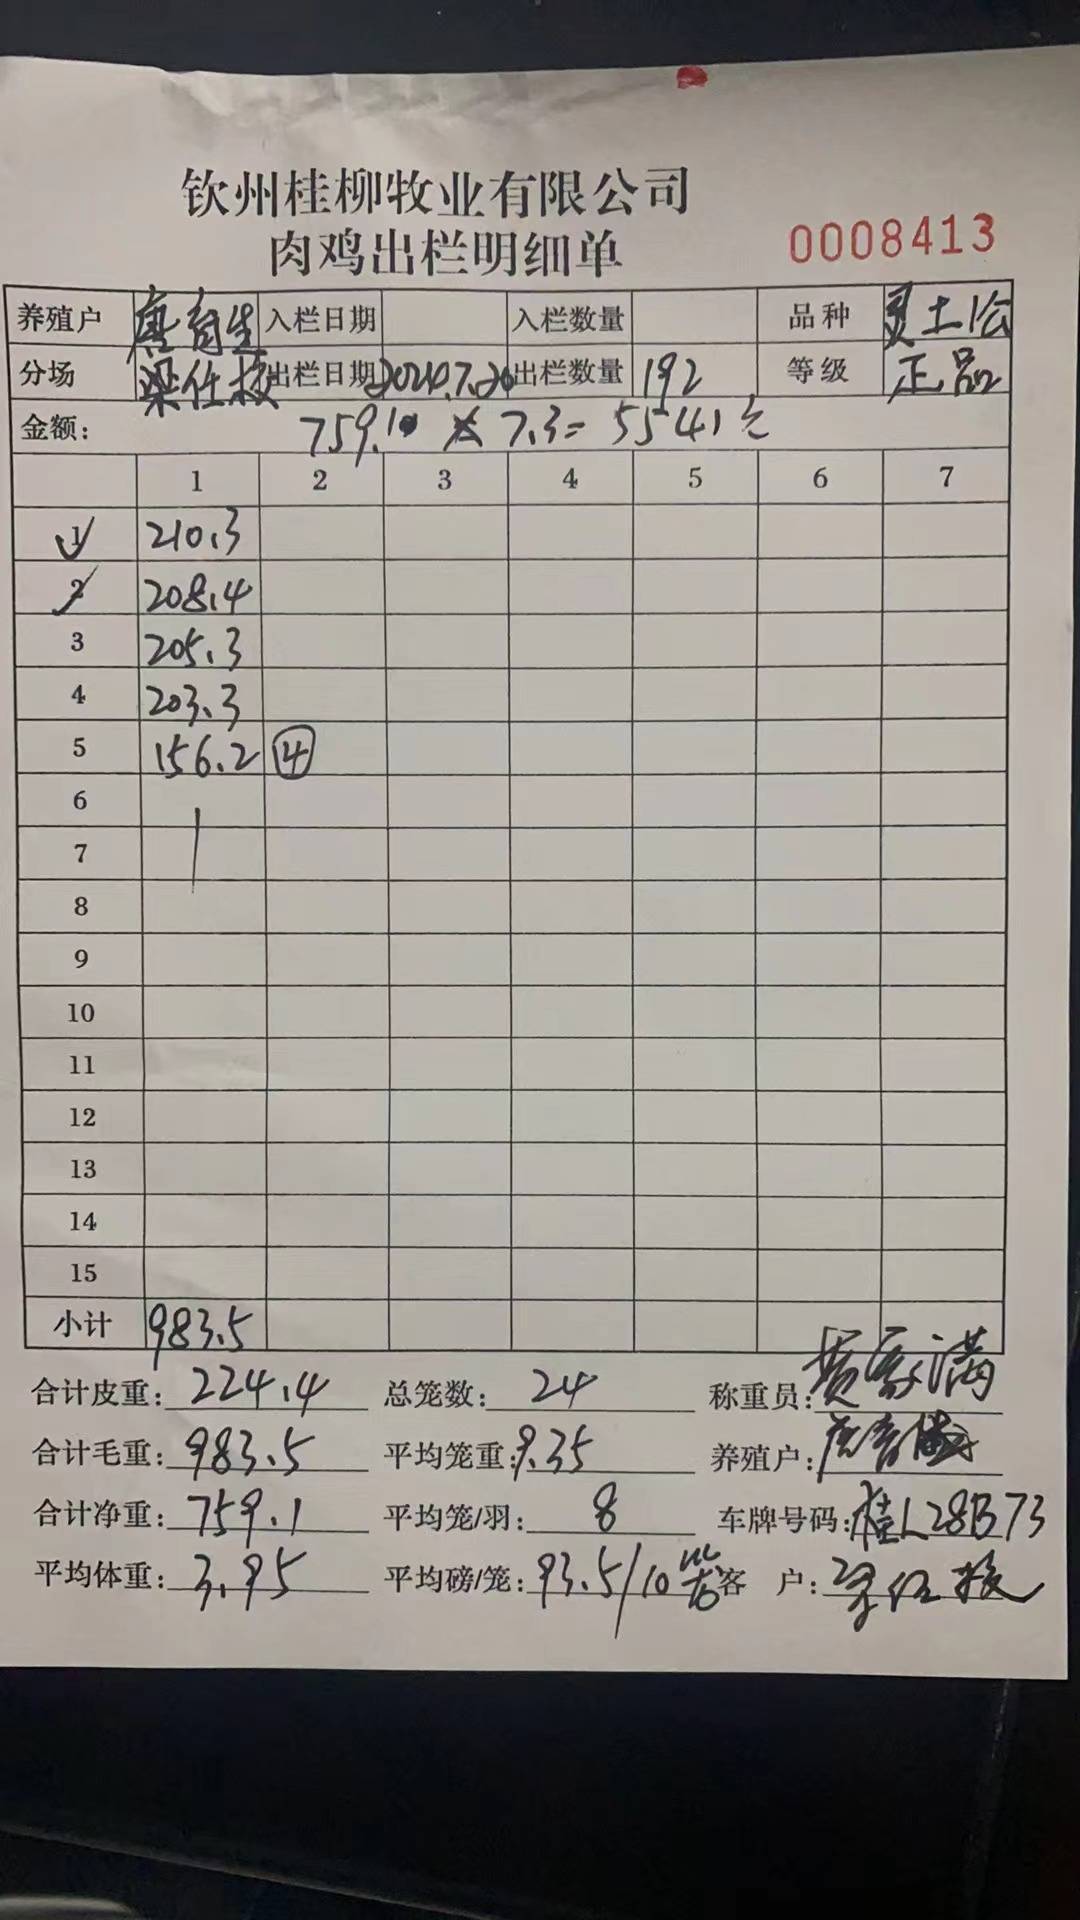 钦州桂柳牧业有限公司
肉鸡出栏明细单 0008413
养殖户 唐育生 入栏日期 入栏数量 品种 灵土1公
分场 梁任枝 出栏日期 2024.7.20 出栏数量 192 等级 正品
金额: 759.10 × 7.3= 5541元
1 2 3 4 5 6 7
1 210.3
2 208.4
3 205.3
4 203.3
5 156.2 ④
6
7
8
9
10
11
12
13
14
15
小计 983.5
合计皮重: 224.4 总笼数: 24 称重员: 满
合计毛重: 983.5 平均笼重: 9.35 养殖户:
合计净重: 759.1 平均笼/羽: 8 车牌号码: 桂L28B73
平均体重: 3.95 平均磅/笼: 93.5/10 客 户: